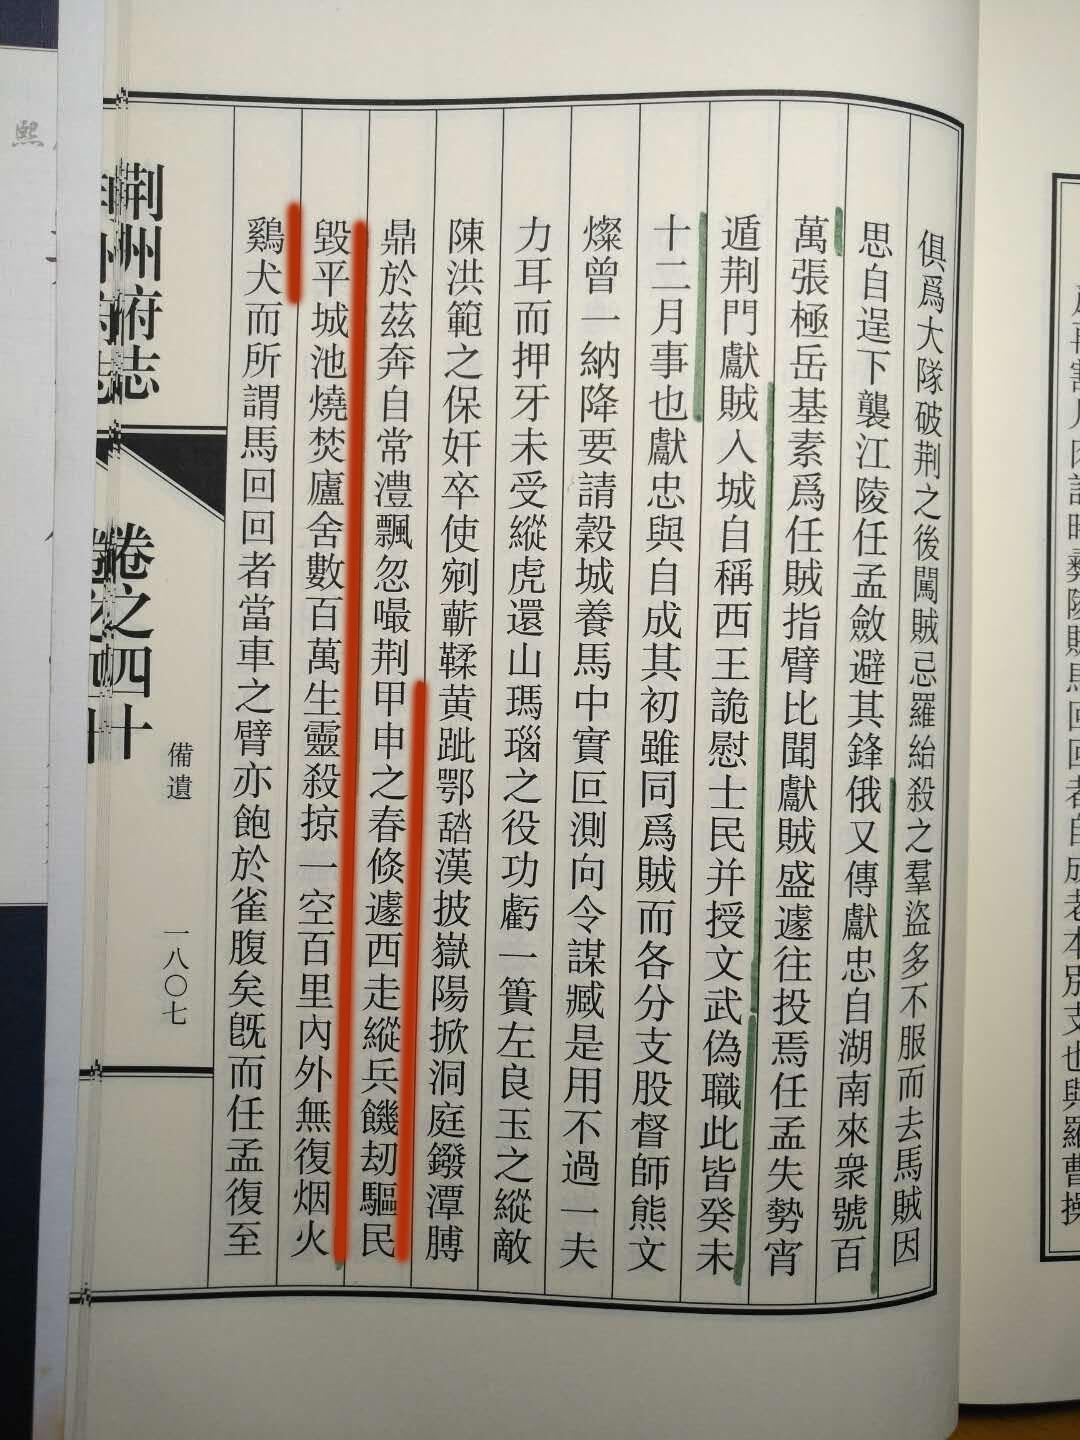 俱爲大隊破荆之後闖賊忌羅紿殺之羣盜多不服而去馬賊因
思自逞下襲江陵任孟斂避其鋒俄又傳獻忠自湖南來衆號百
萬張極岳基素爲任賊指臂比聞獻賊盛遽往投焉任孟失勢宵
遁荆門獻賊入城自稱西王詭慰士民并授文武偽職此皆癸未
十二月事也獻忠與自成其初雖同爲賊而各分支股督師熊文
燦曾一納降要請穀城養馬中實叵測向令謀臧是用不過一夫
力耳而押牙未受縱虎還山瑪瑙之役功虧一簣左良玉之縱敵
陳洪範之保奸卒使剜蘄鞣黄跐鄂舕漢披嶽陽掀洞庭鏺潭膊
鼎於茲奔自常澧飄忽嘬荆甲申之春倏遽西走縱兵饑刼驅民
毀平城池燒焚廬舍數百萬生靈殺掠一空百里內外無復烟火
鷄犬而所謂馬回回者當車之臂亦飽於雀腹矣旣而任孟復至
荆州府志
卷之四十
備遺
一八〇七
熙